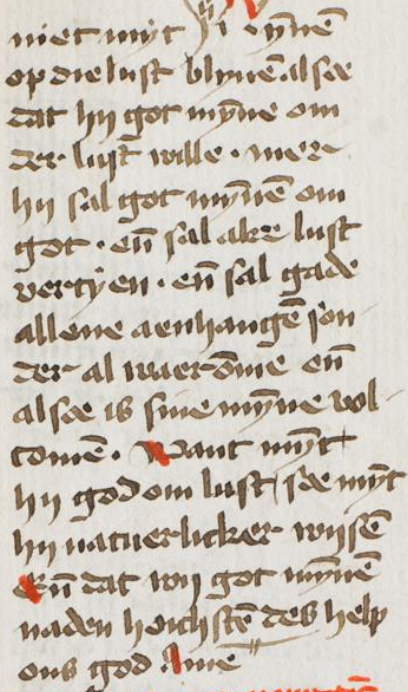 niet myt sÿnē
op die lust blyuē alsoe
dat hij got mỹne om
der lust wille · mere
hij sal got mỹnē om
got · eñ sal alre lust
vertyen · eñ sal gade
allene aenhangē son
der al waerōme eñ
alsoe is sine mỹne vol
comē · Want mỹt
hij god om lust soe mỹt
hij natuerlicker wijsē
Eñ dat wij got mỹnē
naden hoichstē des help
ons god Amē